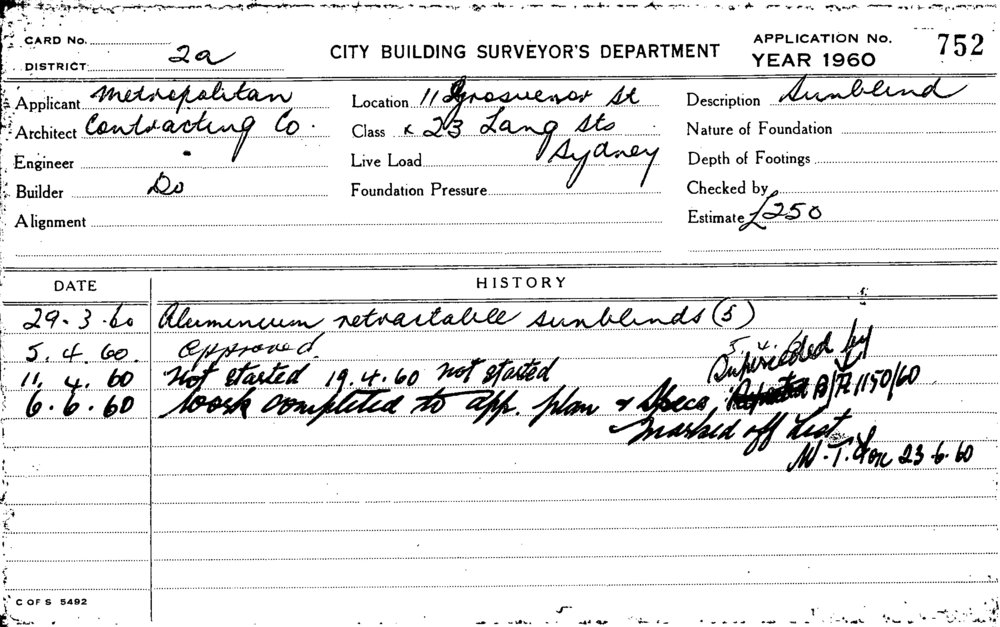 CARD No.
DISTRICT 2a
CITY BUILDING SURVEYOR'S DEPARTMENT
APPLICATION No. 752
YEAR 1960
Applicant Metropolitan
Architect Contracting Co.
Engineer
Builder Do
Alignment
Location 11 Grosvenor St
Class & 23 Lang Sts
Live Load Sydney
Foundation Pressure
Description Sunblind
Nature of Foundation
Depth of Footings
Checked by
Estimate £250
DATE HISTORY
29.3.60 Aluminium retractable sunblinds (5)
5.4.60. Approved. 5.4.6
11.4.60 Not started 19.4.60 not started Superceded by
6.6.60 Work completed to app. plan & Specs B/A 1150/60
Marked off List
23.6.60
C OF S 5492